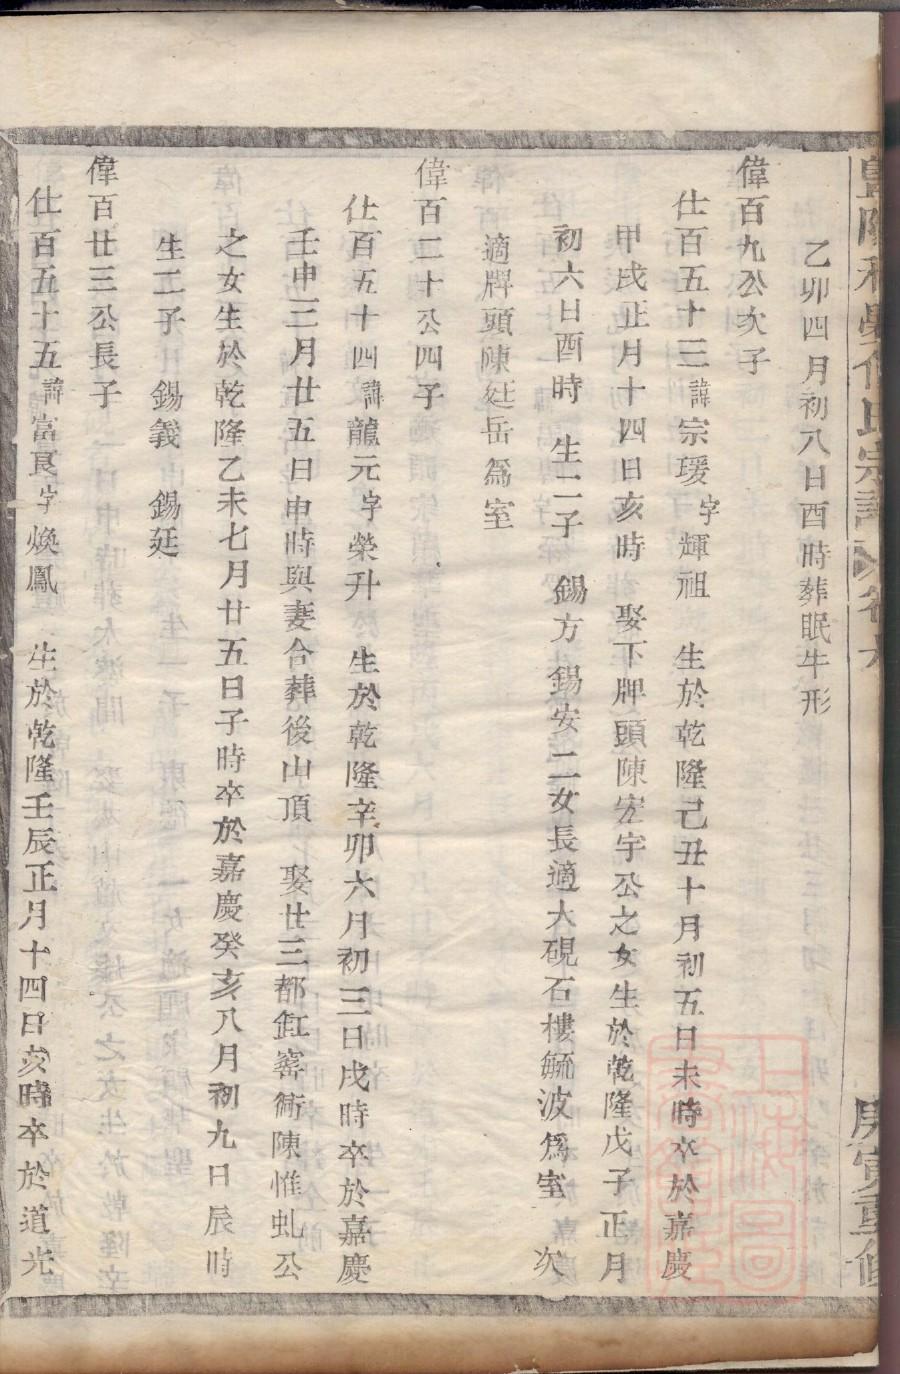 宗譜 卷六 庚寅重修
乙卯四月初八日酉時葬眠牛形
偉百九公次子
仕百五十三諱宗瑗字輝祖 生於乾隆己丑十月初五日未時卒於嘉慶
甲戌正月十四日亥時 娶下牌頭陳宏宇公之女生於乾隆戊子正月
初六日酉時 生二子 錫方 錫安二女長適大硯石樓毓波為室 次
適牌頭陳廷岳為室
偉百二十公四子
仕百五十四諱龍元字榮升 生於乾隆辛卯六月初三日戌時卒於嘉慶
壬申三月廿五日申時與妻合葬後山頂 娶廿三都釭窰衕陳惟虬公
之女生於乾隆乙未七月廿五日子時卒於嘉慶癸亥八月初九日辰時
生二子 錫義 錫廷
偉百廿三公長子
仕百五十五諱富良字煥鳳 生於乾隆壬辰正月十四日亥時卒於道光